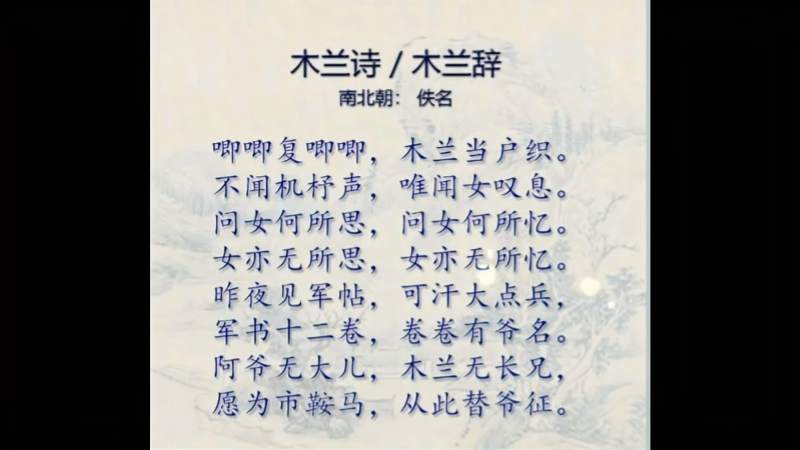 木兰诗 / 木兰辞
南北朝： 佚名
唧唧复唧唧，木兰当户织。
不闻机杼声，唯闻女叹息。
问女何所思，问女何所忆。
女亦无所思，女亦无所忆。
昨夜见军帖，可汗大点兵，
军书十二卷，卷卷有爷名。
阿爷无大儿，木兰无长兄，
愿为市鞍马，从此替爷征。